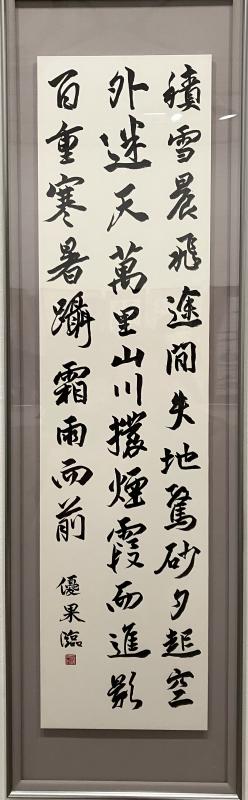 積雪晨飛途間失地驚砂夕起空
外迷天萬里山川撥煙霞而進影
百重寒暑躡霜雨而前
優果臨